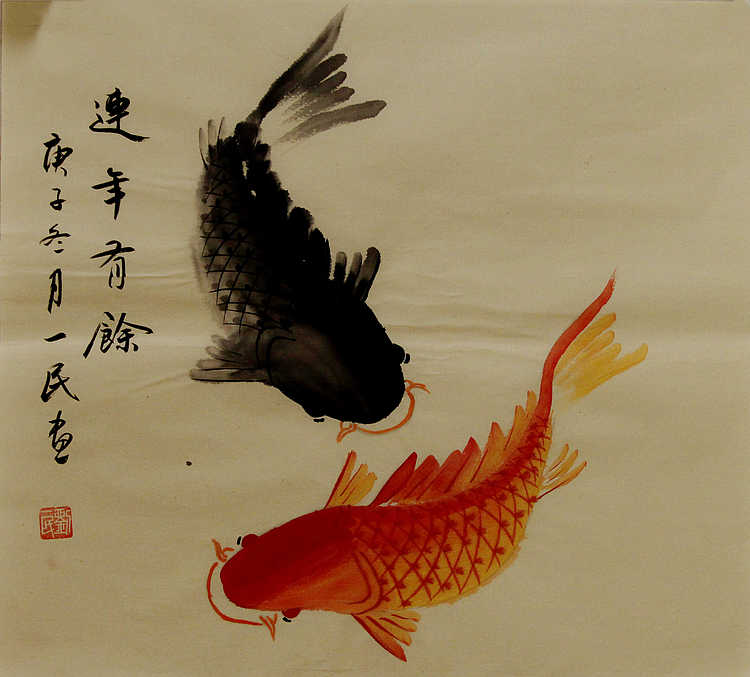 連年有餘
庚子冬月一民畫
劉